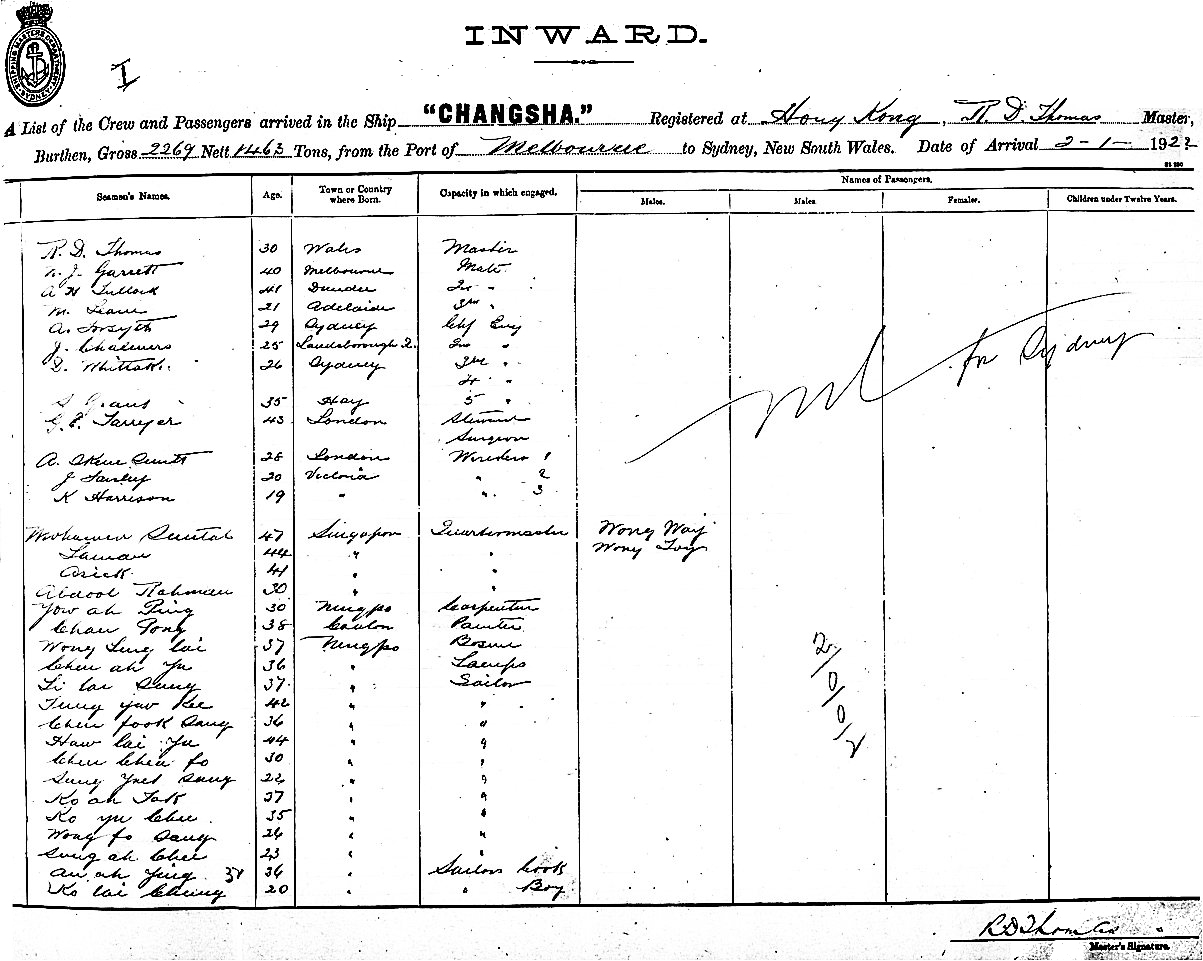 INWARD.
I
A List of the Crew and Passengers arrived in the Ship "CHANGSHA." Registered at Hong Kong, R. D. Thomas Master,
Burthen, Gross 2269 Nett 1463 Tons, from the Port of Melbourne to Sydney, New South Wales. Date of Arrival 2-1- 1922
Names of Passengers.
Seamen's Names. Age. Town or Country where Born. Capacity in which engaged. Males. Males Females. Children under Twelve Years.
R. D. Thomas 30 Wales Master
Garrett 40 Melbourne Mate
A H Tullock 41 Dundee 2nd "
M. 21 Adelaide 3rd "
A. Forsyth 29 Sydney Chf Eng
J. Chalmers 25 Landsborough 2nd "
Whittak 26 Sydney 3rd "
4 "
35 Hay 5 "
G. E. Farryer 43 London Steward
Surgeon
A. 28 London Wireless 1
J 20 Victoria " 2
K Harrison 19 " " 3
nil for Sydney
47 Singapore Quartermaster Wong Way
44 " " Wong
41 " "
Abdool Rahman 30 " "
Yow ah Ping 30 Ningpo Carpenter
Chan Tong 38 Canton Painter
Wong Ling lai 37 Ningpo Bosun
Chen ah Yu 36 " Lamps
Li lai Sung 37 " Sailor
Tung yuv Kee 42 " "
Chen fook Sang 36 " "
Haw lai Yu 44 " "
Chen Chen fo 30 " "
Sung Sang 22 " "
Ko ah Tak 37 " "
Ko yu Chee 35 " "
Wong fo Sang 26 " "
Sung ah Chee 23 " "
ah Jing 34 36 " Sailors Cook
Ko lai Chung 20 " " Boy
2/0/0/2
R D Thomas
Master's Signature.